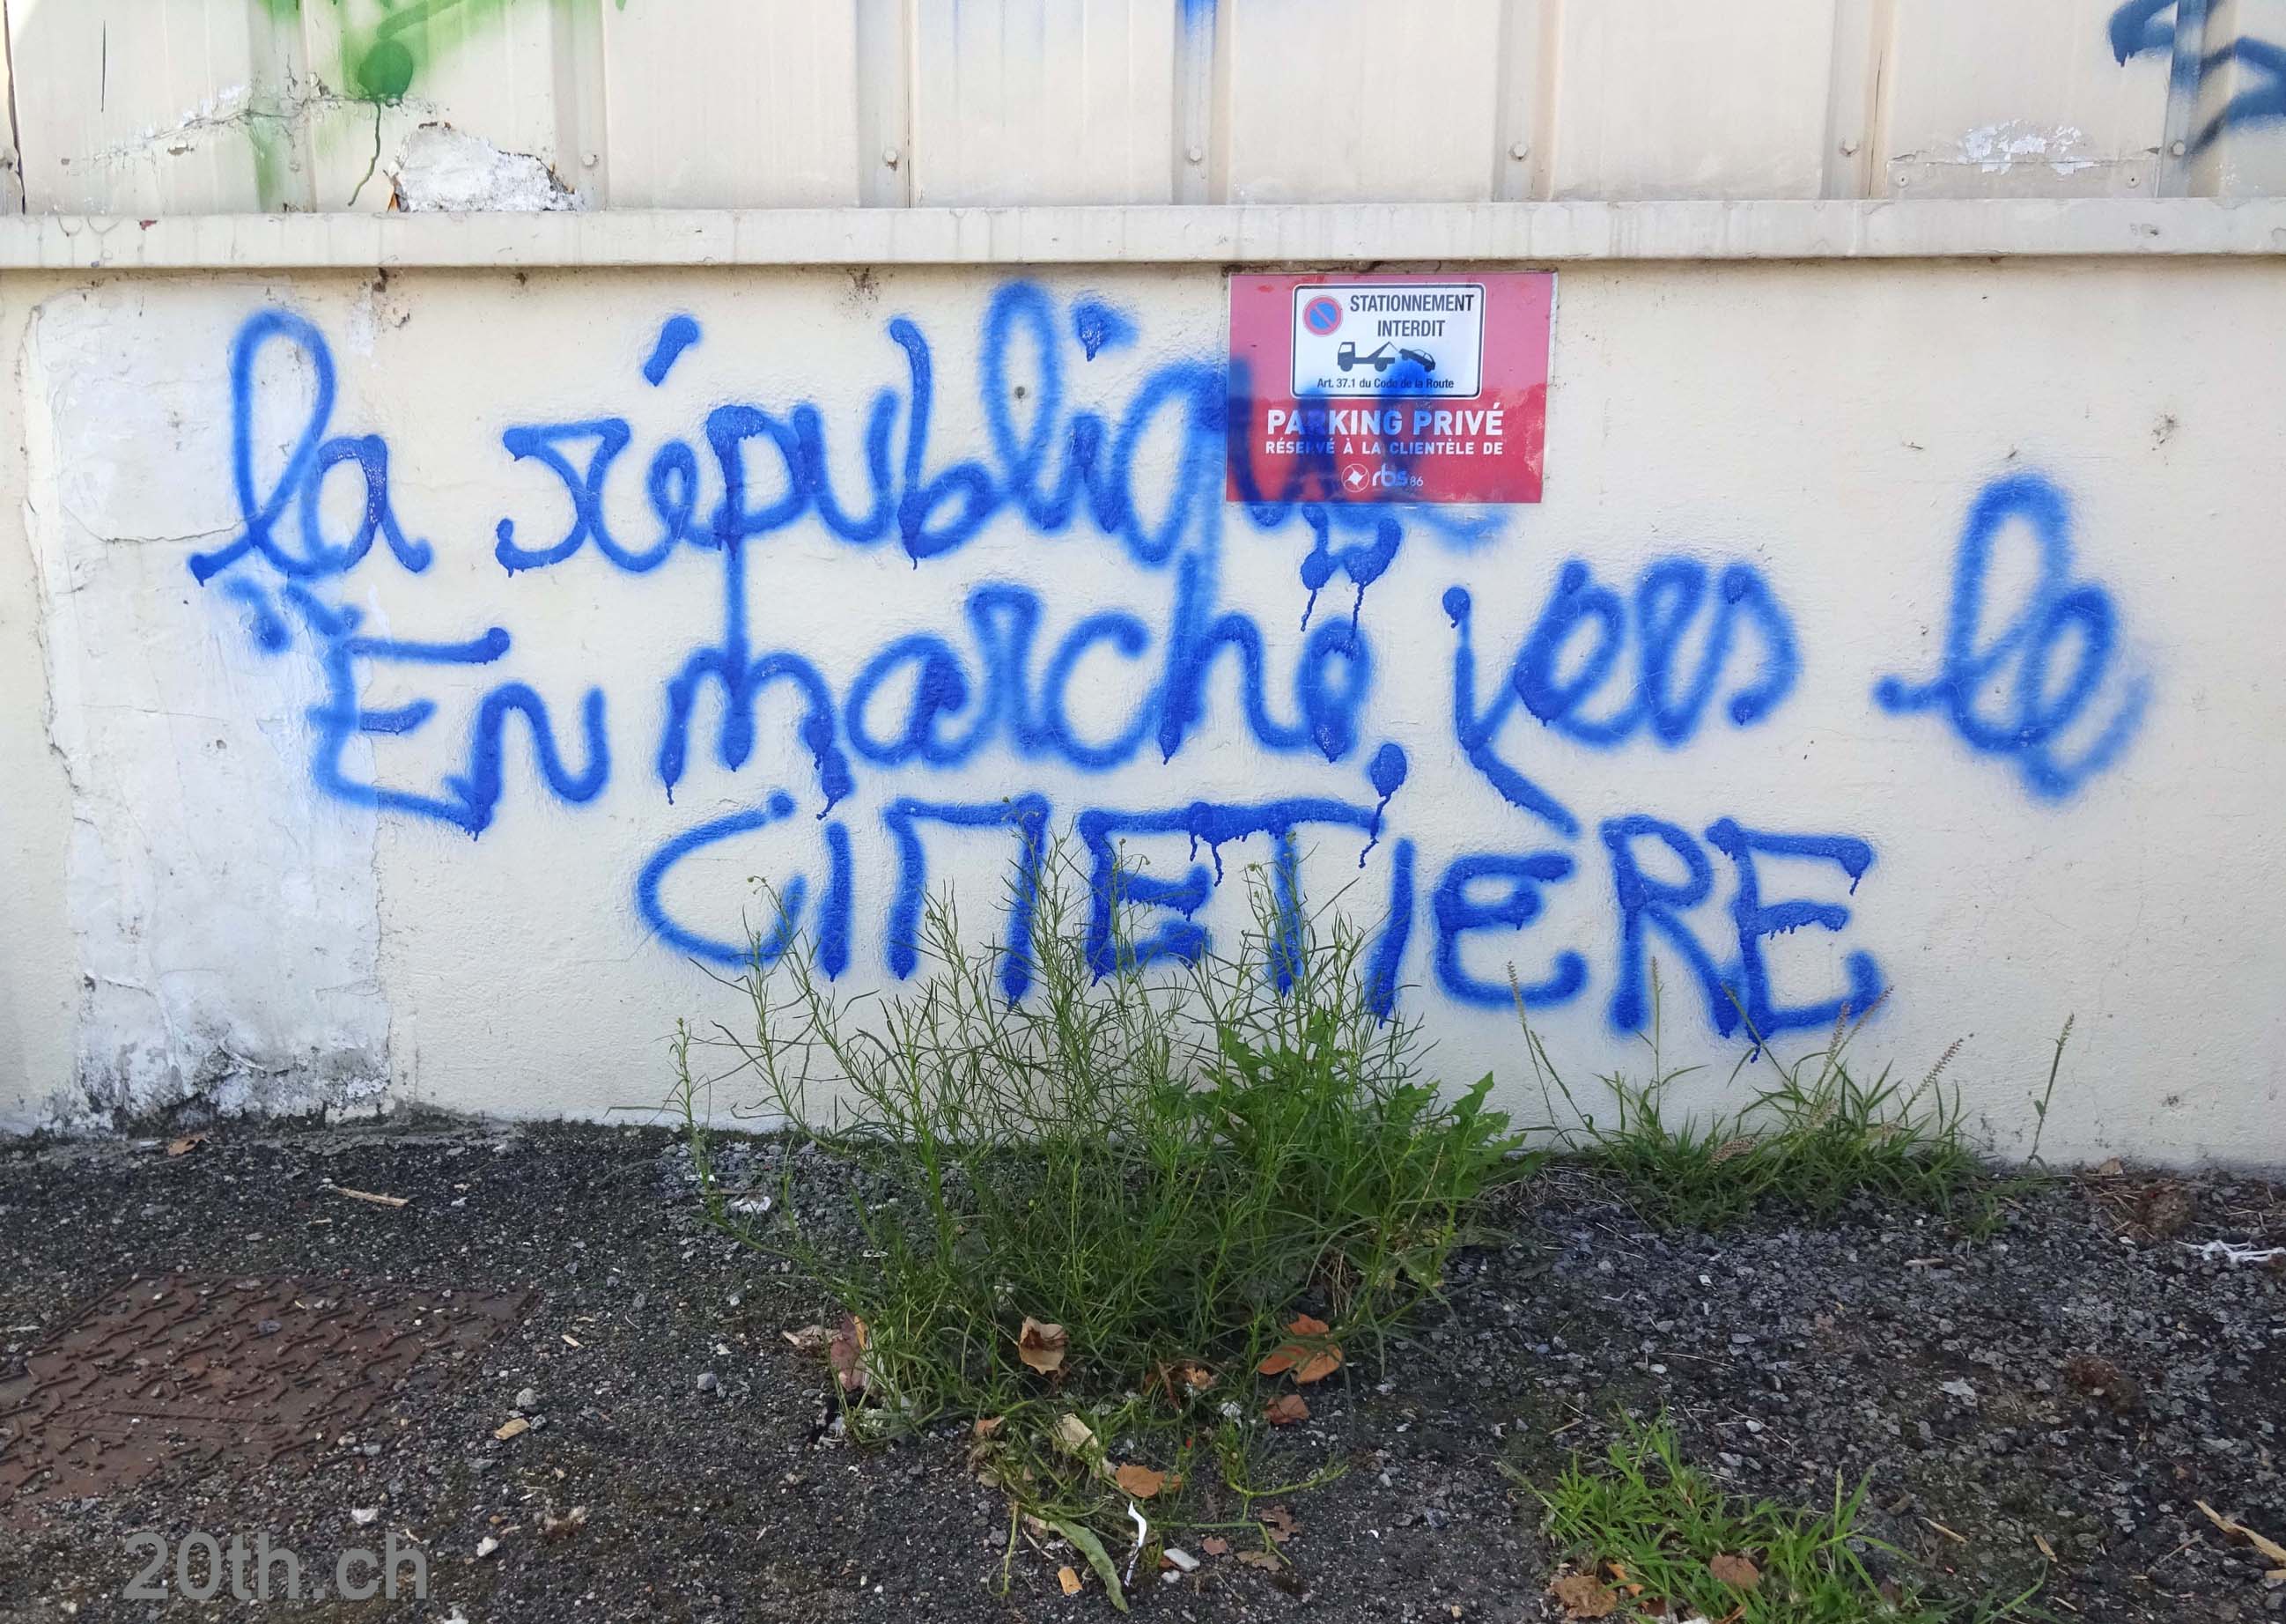 STATIONNEMENT
INTERDIT
Art. 37.1 du Code de la Route
PARKING PRIVÉ
RÉSERVÉ À LA CLIENTÈLE DE
rbs 86
la république
En marche vers le
CIMETIÈRE
20th.ch